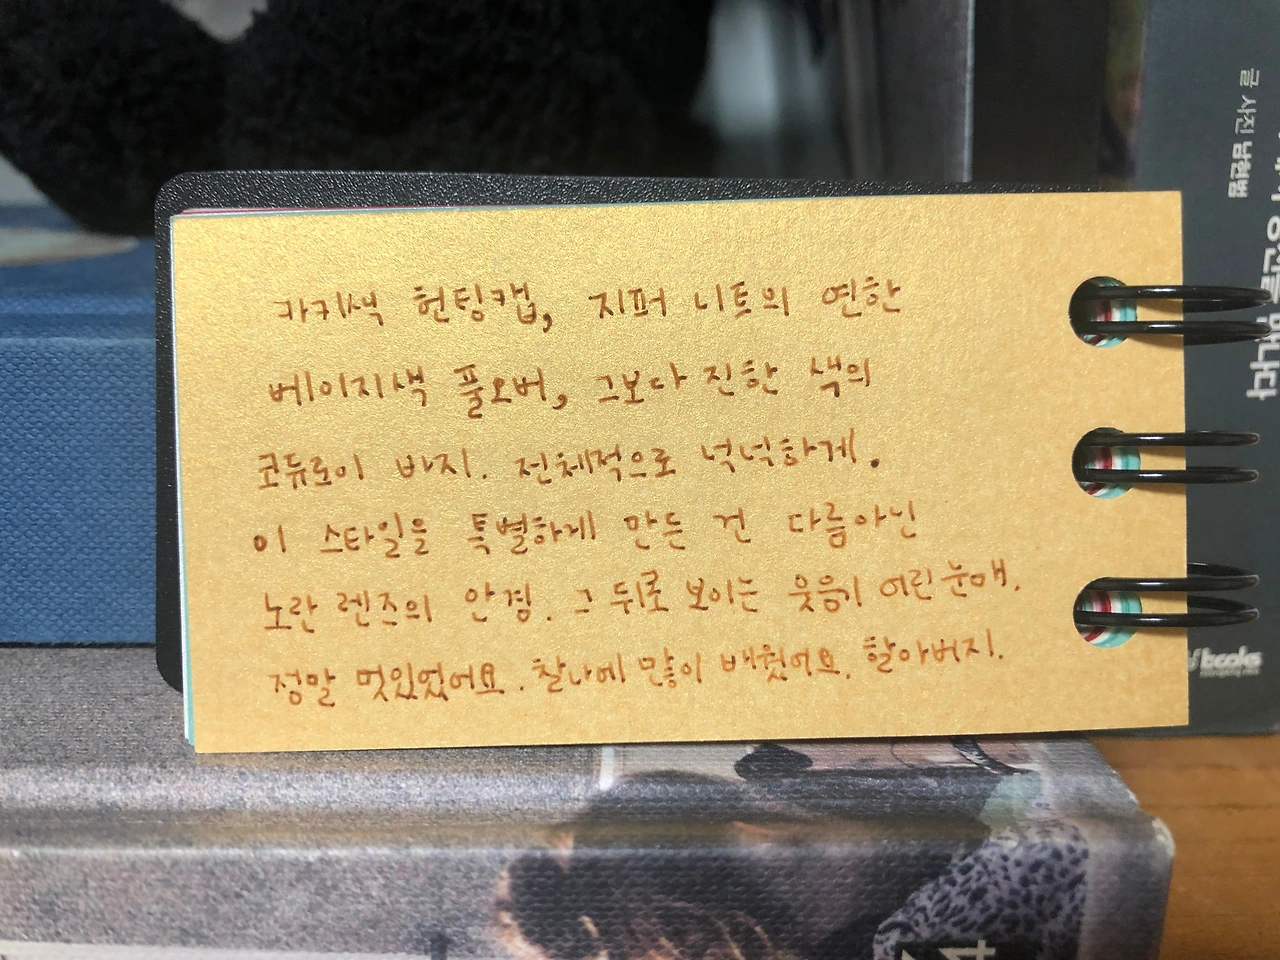 카키색 헌팅캡, 지퍼 니트의 연한
베이지색 풀오버, 그보다 진한 색의
코듀로이 바지. 전체적으로 넉넉하게.
이 스타일을 특별하게 만든 건 다름아닌
노란 렌즈의 안경. 그 뒤로 보이는 웃음기 어린 눈매.
정말 멋있었어요. 찰나에 많이 배웠어요, 할아버지.
글 사진 남현범
books